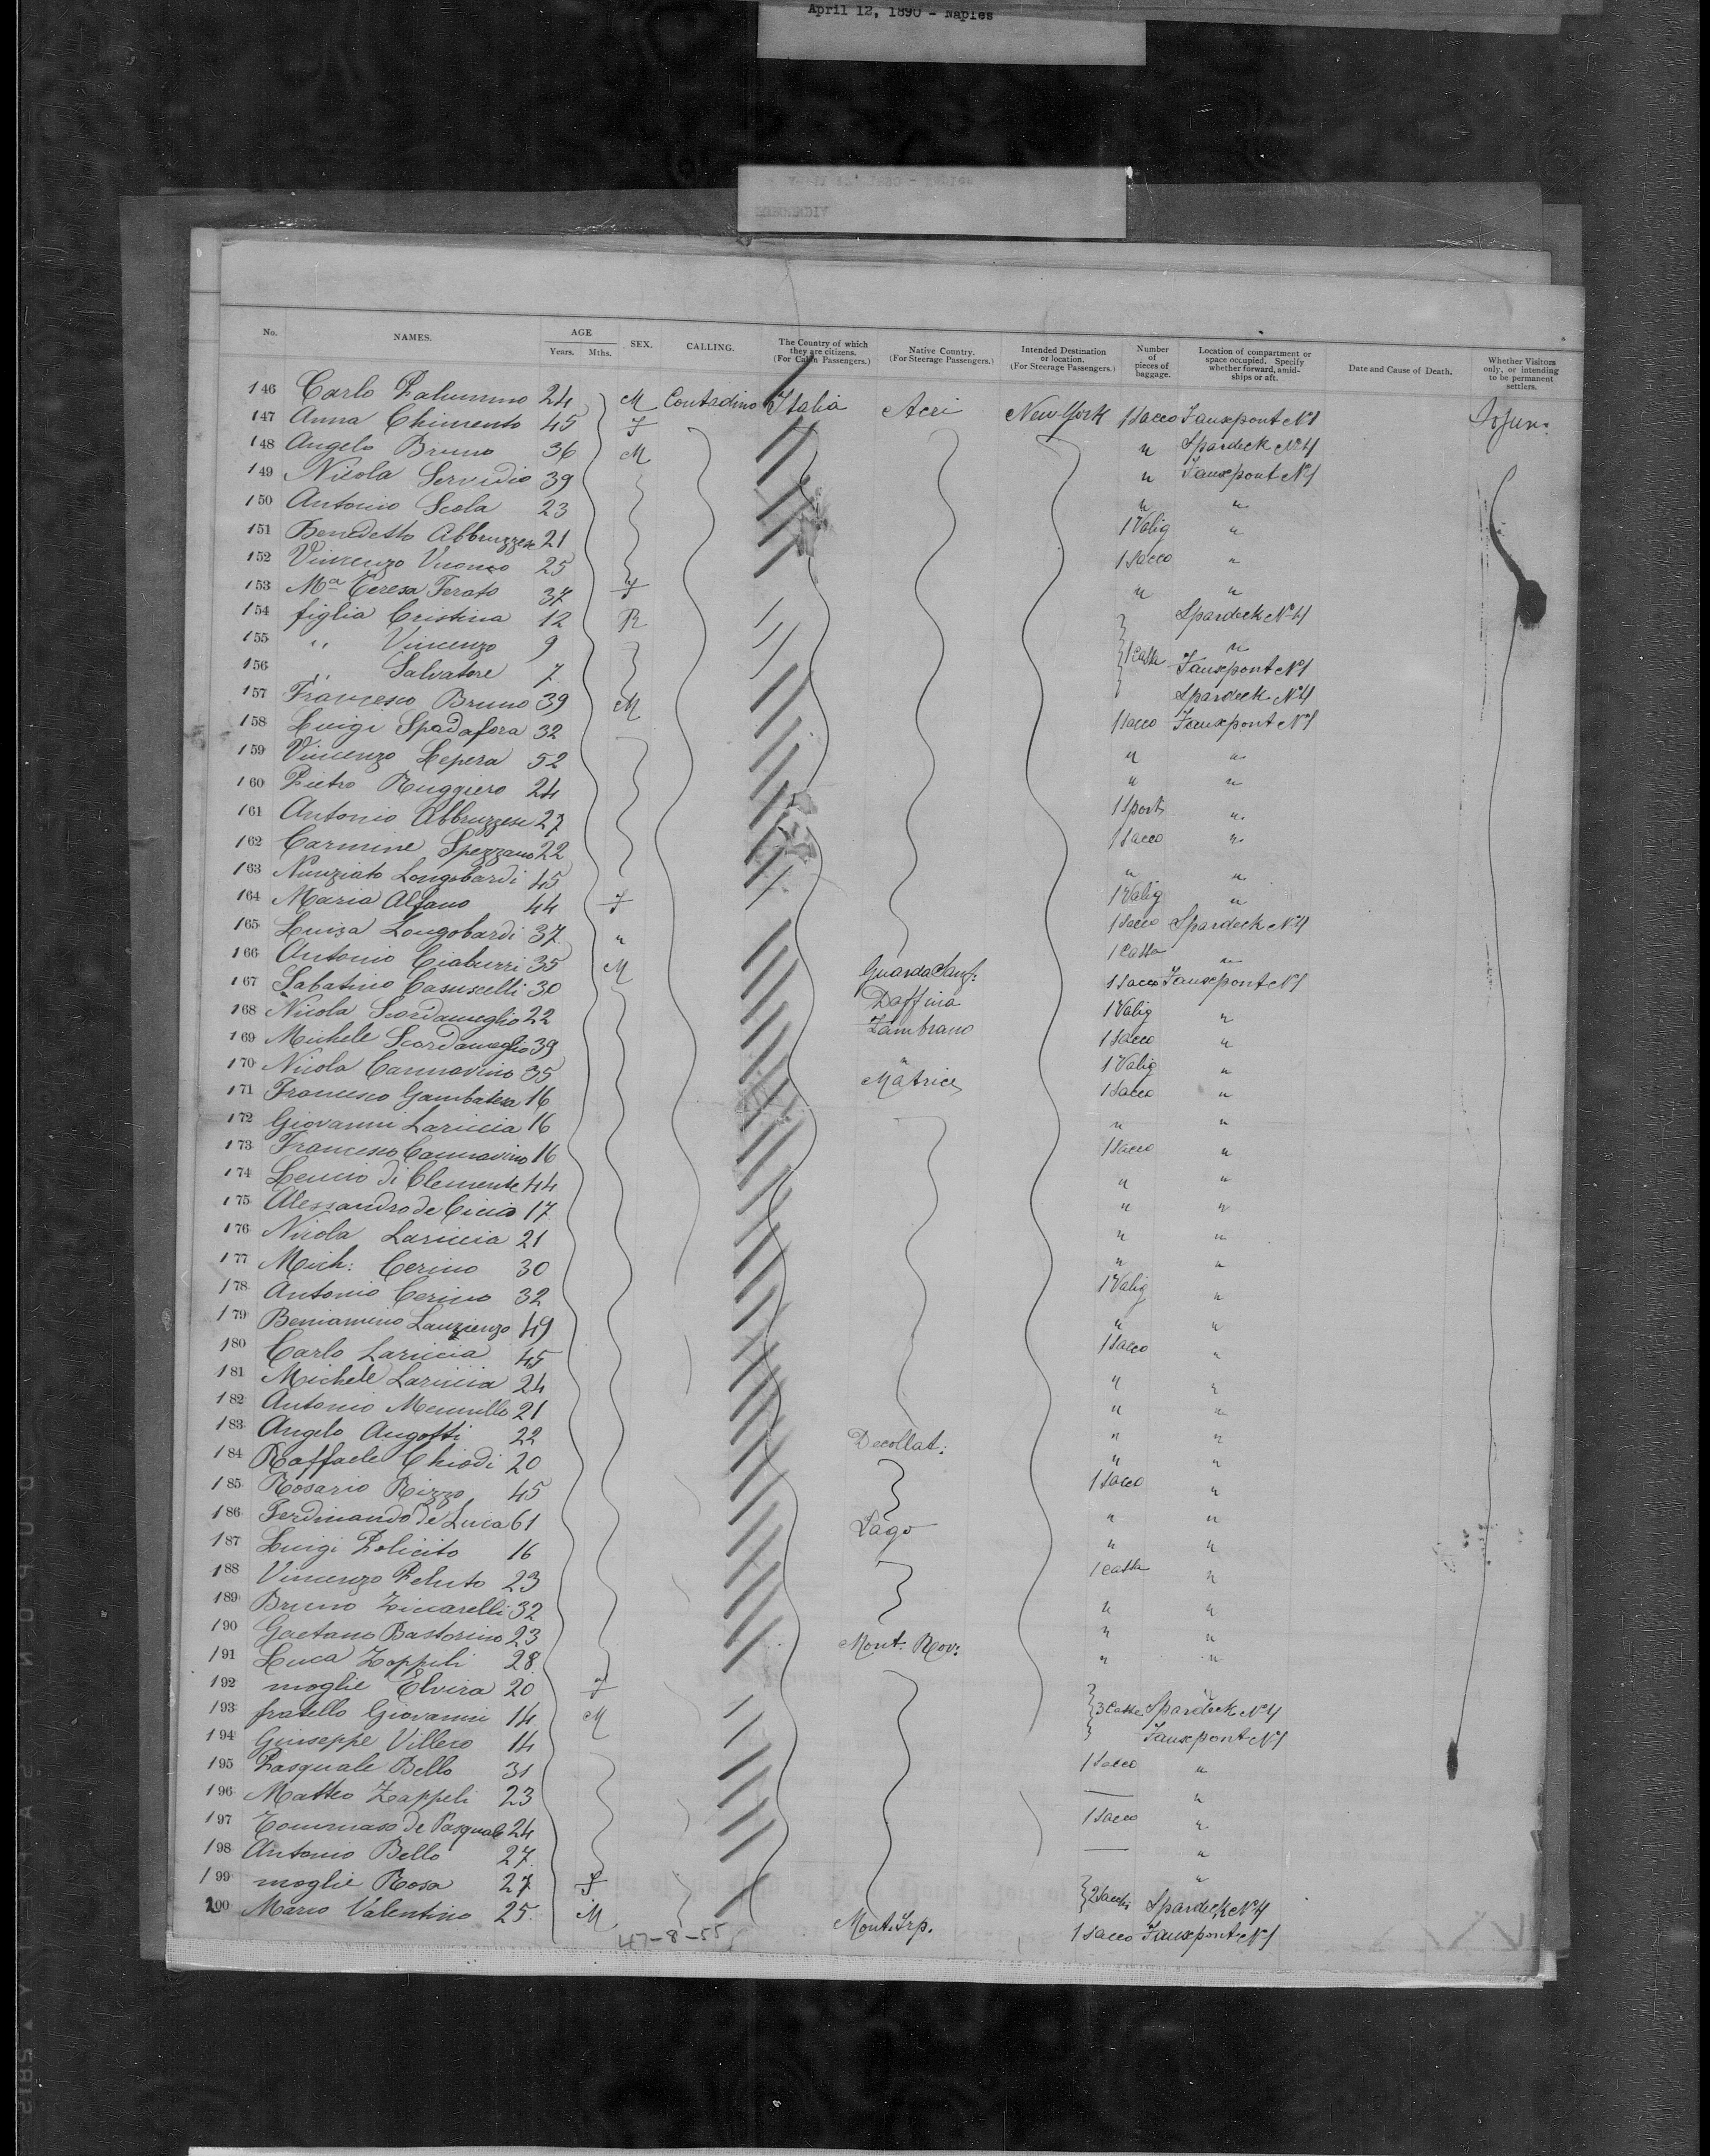 April 12, 1890 - Naples
No. NAMES. AGE Years. Mths. SEX. CALLING. The Country of which they are citizens. (For Cabin Passengers.) Native Country. (For Steerage Passengers.) Intended Destination or location. (For Steerage Passengers.) Number of pieces of baggage. Location of compartment or space occupied. Specify whether forward, amidships or aft. Date and Cause of Death. Whether Visitors only, or intending to be permanent settlers.
146 Carlo Palummo 24 M Contadino Italia Acri New York 1 Sacco Fauxpont No1
147 Anna Chimento 45 F " Spardeck No4
148 Angelo Bruno 36 M " Fauxpont No1
149 Nicola Servidio 39 " "
150 Antonio Scola 23 1 Valig "
151 Benedetto Abbruzzese 21 1 Sacco "
152 Vincenzo 25 " "
153 Ma Teresa Ferato 37 F Spardeck No4
154 figlia Cristina 12 R "
155 " Vincenzo 9 1 Cassa Fauxpont No1
156 " Salvatore 7 Spardeck No4
157 Francesco Bruno 39 M 1 Sacco Fauxpont No1
158 Luigi Spadafora 32 " "
159 Vincenzo Lepera 52 " "
160 Pietro Ruggiero 24 1 Sport "
161 Antonio Abbruzzese 27 1 Sacco "
162 Carmine Spezzano 22 " "
163 Nunziato Longobardi 45 1 Valig "
164 Maria Alfano 44 F 1 Sacco Spardeck No4
165 Luisa Longobardi 37 " 1 Cassa "
166 Antonio Ciaburri 35 M Guarda Sanf: 1 Sacco Fauxpont No1
167 Sabatino Casuscelli 30 Daffina 1 Valig "
168 Nicola Scordamaglio 22 Zambrano 1 Sacco "
169 Michele Scordamaglio 39 " 1 Valig "
170 Nicola Cannavino 35 Matrice 1 Sacco "
171 Francesco Gambatesa 16 " "
172 Giovanni Lariccia 16 1 Sacco "
173 Francesco Cannavino 16 " "
174 di Clemente 44 " "
175 Alessandro de Cicco 17 " "
176 Nicola Lariccia 21 " "
177 Mich: Cerino 30 1 Valig "
178 Antonio Cerino 32 " "
179 Beniamino 49 1 Sacco "
180 Carlo Lariccia 45 " "
181 Michele Lariccia 24 " "
182 Antonio Mennillo 21 " "
183 Angelo Angotti 22 Decollat: " "
184 Raffaele Chiodi 20 1 Sacco "
185 Rosario Rizzo 45 " "
186 Ferdinando de Luca 61 Lago " "
187 Luigi Policito 16 1 Cassa "
188 Vincenzo Peluto 23 " "
189 Bruno Ziccarelli 32 " "
190 Gaetano Bastorino 23 Mont. Rov: " "
191 Luca Zoppeli 28 "
192 moglie Elvira 20 F 3 Casse Spardeck No4
193 fratello Giovanni 14 M Fauxpont No1
194 Giuseppe Villero 14 1 Sacco "
195 Pasquale Bello 31 — "
196 Matteo Zappeli 23 1 Sacco "
197 Tommaso de Pasquale 24 — "
198 Antonio Bello 27 "
199 moglie Rosa 27 F 2 Sacchi Spardeck No4
200 Mario Valentino 25 M Mont. Irp. 1 Sacco Fauxpont No1
47-8-55